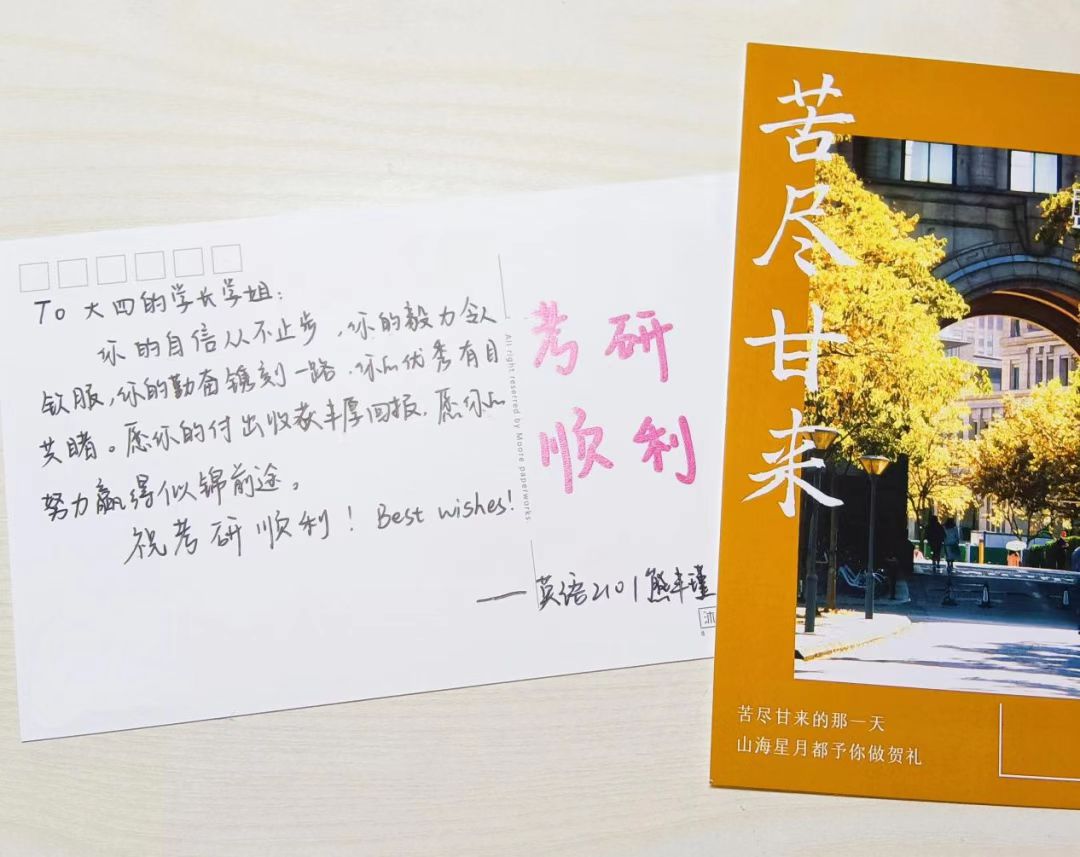 To 大四的学长学姐：
你的自信从不止步，你的毅力令人
钦服，你的勤奋镌刻一路，你的优秀有目
共睹。愿你的付出收获丰厚回报，愿你的
努力赢得似锦前途。
祝考研顺利！Best wishes!
——英语2101熊丰瑾
All right reserred by Moore paperworks.
考研
顺利
沐
苦尽甘来
苦尽甘来的那一天
山海星月都予你做贺礼